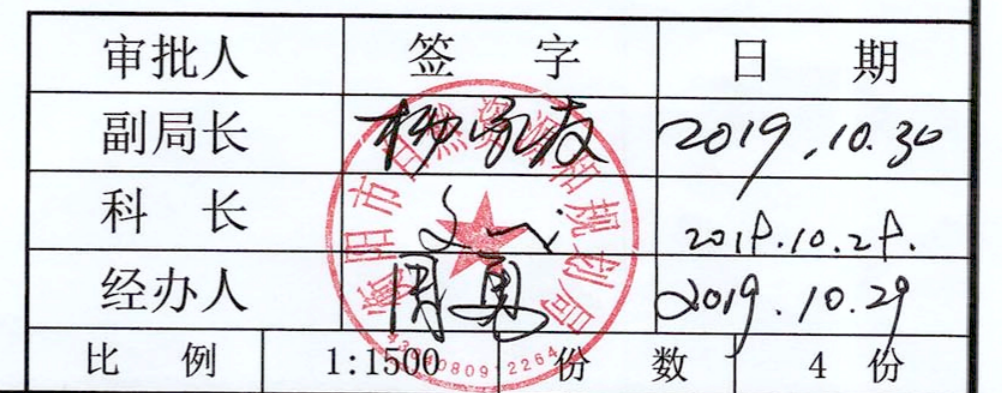 审批人 签 字 日 期
副局长 杨家友 2019.10.30
科 长 2019.10.29.
经办人 周勇 2019.10.29
比 例 1:1500 份 数 4 份
衡阳市自然资源和规划局